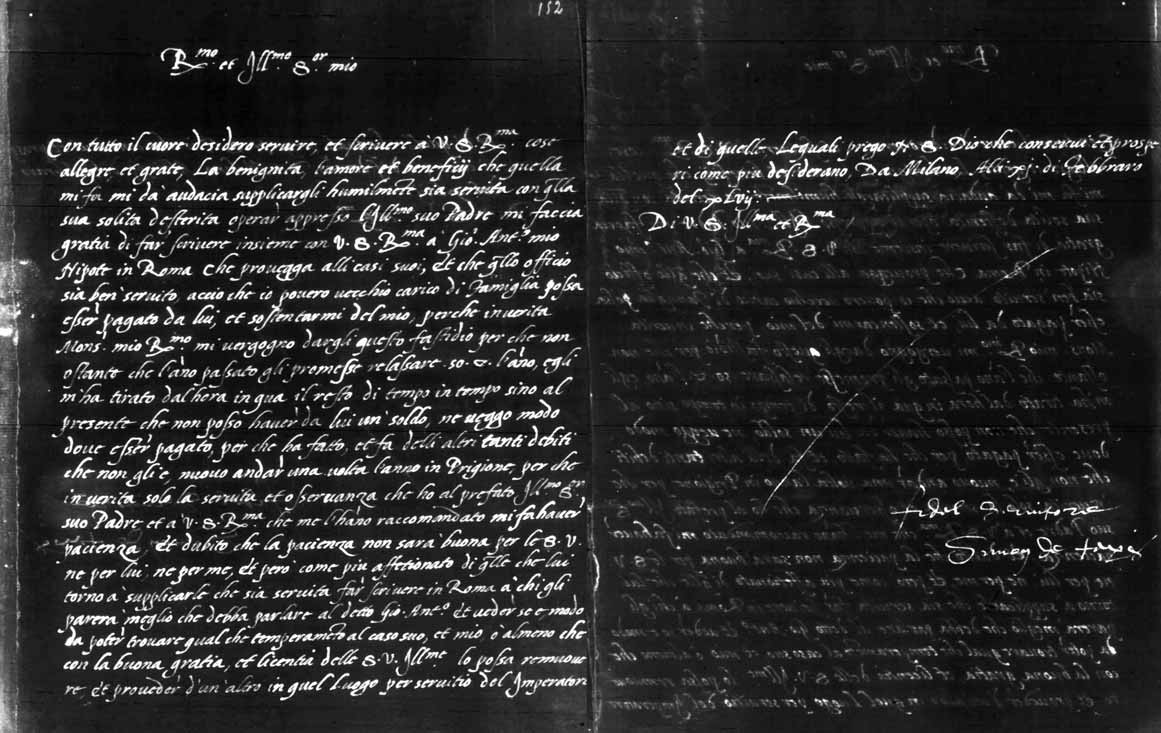 152
R.mo et Ill.mo S.or mio
Con tutto il cuore desidero servire, et scrivere à V. S. R.ma cose
allegre et grate, La benignita, l'amore et beneficij che quella
mi fa mi da audacia supplicargli humilmẽte sia servita con q̃lla
sua solita desterita operar appresso l'Ill.mo suo Padre mi faccia
gratia di far scrivere insieme con V. S. R.ma a Gio. Ant.o mio
Nipote in Roma che provegga alli casi suoi, et che q̃llo officio
sia ben servito, accio che io povero vecchio carico di Famiglia possa
esser pagato da lui, et sostentarmi del mio, perche in verita
Mons.r mio R.mo mi vergogno dargli questo fastidio per che non
ostante che l'ãno passato gli promesse relassare 50 l'ãno, egli
m'ha tirato dal'hora in qua il resto di tempo in tempo sino al
presente che non posso haver da lui un soldo, ne veggo modo
dove esser pagato, per che ha fatto, et fa delli altri tanti debiti
che non gli e nuovo andar una volta l'anno in Prigione, per che
in verita solo la servitu et osservanza che ho al prefato Ill.mo S.or
suo Padre, et a V. S. R.ma che me l'hãno raccomandato mi fa haver
pacienza, Et dubito che la pacienza non sara buona per le S. V.
ne per lui, ne per me, et pero come piu affetionato di q̃lle che lui
torno a supplicarle che sia servita far scrivere in Roma a chi gli
parera meglio che debba parlare al detto Gio. Ant.o et veder se e modo
da poter trovare qual che temperamẽto al caso suo, et mio, o almeno che
con la buona gratia, et licentia delle S. V. Ill.me lo possa remuove
re, et proveder d'un'altro in quel Luogo per servitio del Imperatore
et di quelle Lequali prego N. S. Dio che conservi et prospe
ri come piu desiderano, Da Milano, Alli xj. di Febraro
del xLvij.
Di V. S. Ill.ma et R.ma
fidel servitore
Simon de